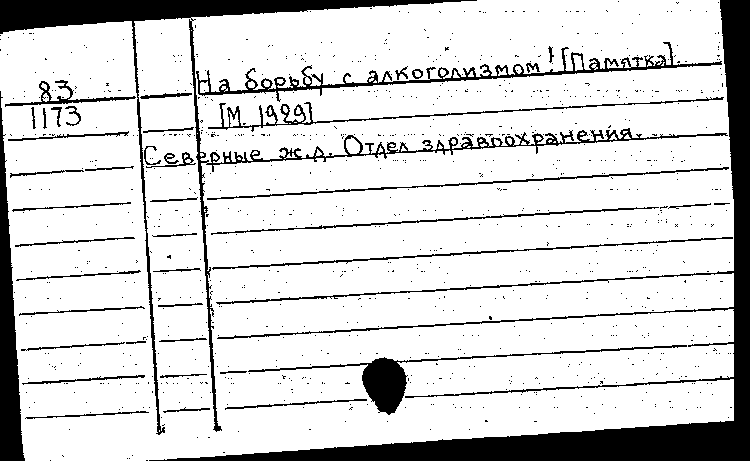 83
1173
На борьбу с алкоголизмом! [Памятка].
[М., 1929]
Северные ж.д. Отдел здравоохранения.